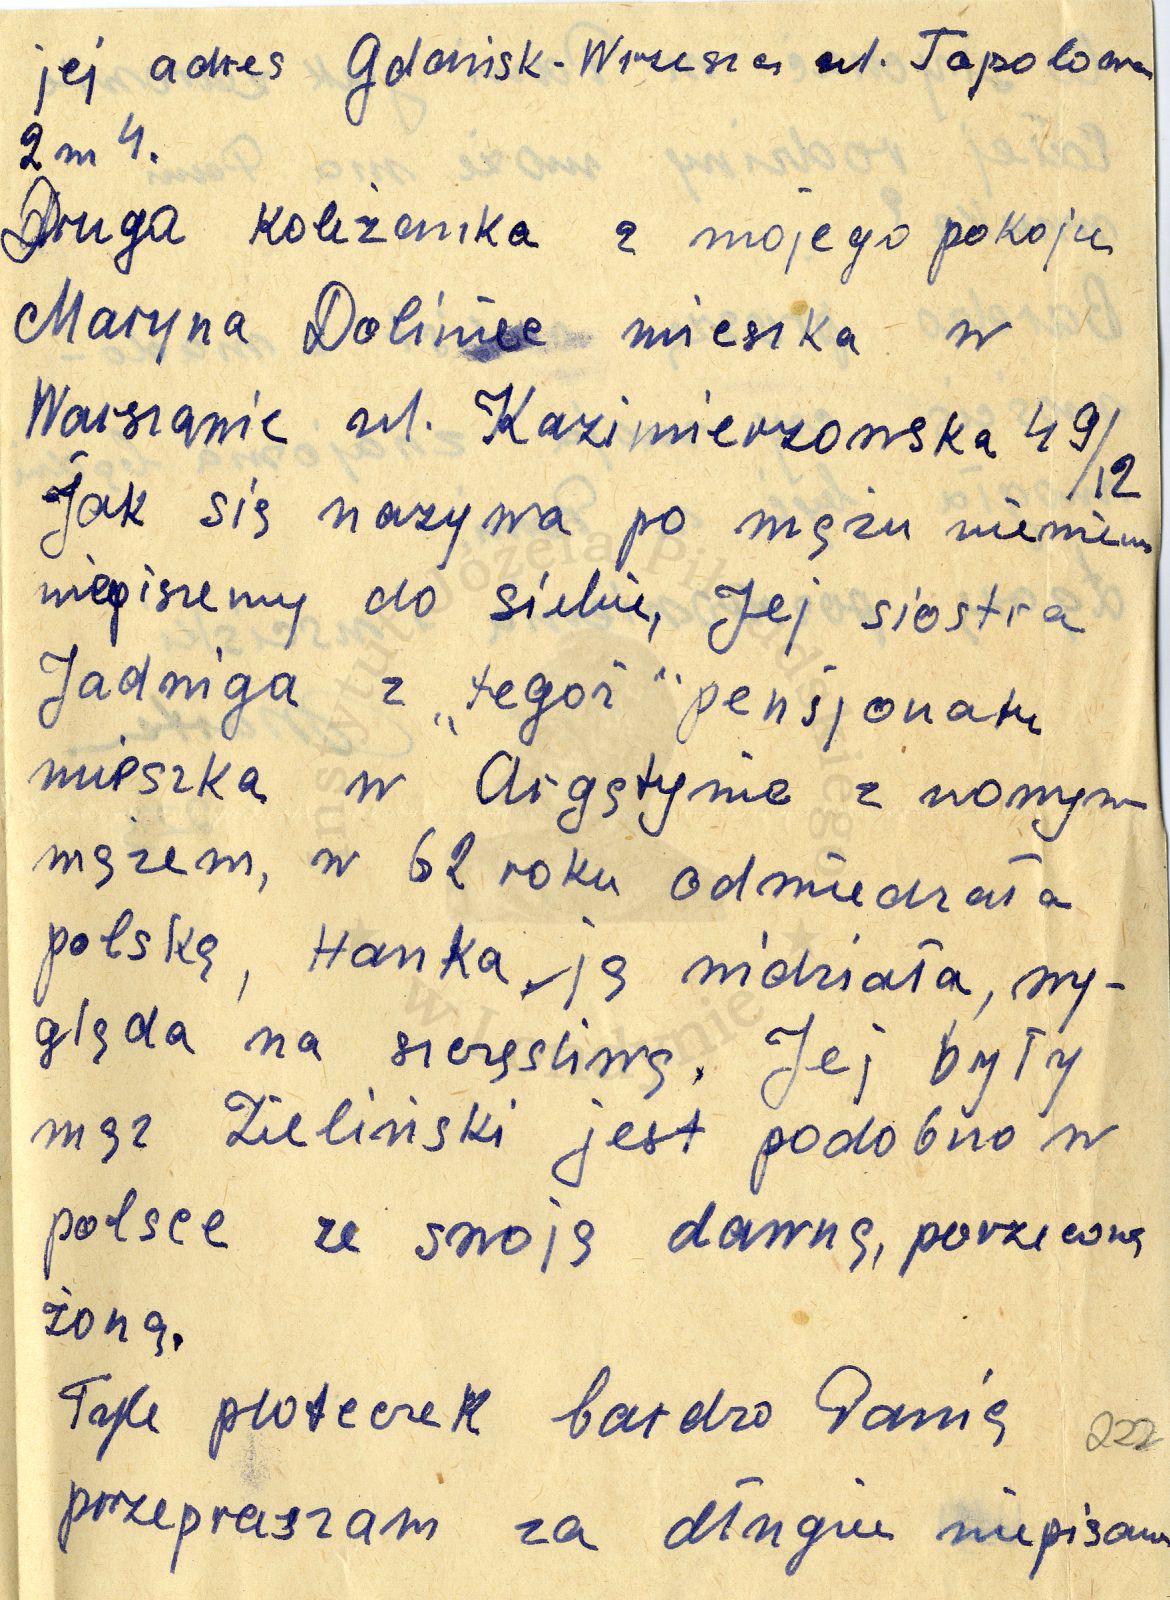 jej adres Gdańsk-Wrzeszcz ul. Topolowa
2 m 4.
Druga koleżanka z mojego pokoju
Maryna Doliniec mieszka w
Warszawie ul. Kazimierzowska 49/12
Jak się nazywa po mężu niewiem
niepiszemy do siebie, Jej siostra
Jadwiga z „tegoż" pensjonatu
mieszka w Argętynie z nowym
mężem, w 62 roku odwiedzała
polską, Hanka ją widziała, wy-
gląda na szczęśliwą. Jej były
mąż Zieliński jest podobno w
polsce ze swoją dawną, porzeconą
żoną.
Tyle ploteczek bardzo Panią
przepraszam za długie niepisanie
222
Instytut Józefa Piłsudskiego
w Londynie